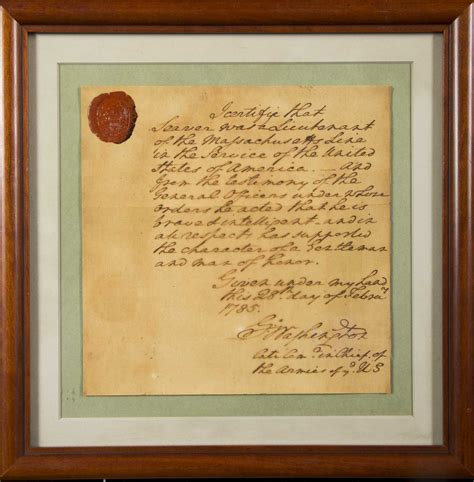 I certify that
Seaver was a Lieutenant
of the Massachusetts Line
in the Service of the United
States of America. — and
from the testimony of the
General Officers under whose
orders he acted that he is
brave & intelligent, and in
all respects has supported
the character of a Gentleman
and man of honor.
Given under my hand
this 28th day of Febry
1785.
G:Washington
late Comr in Chief of
the Armies of ye US